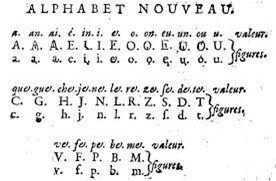 ALPHABET NOUVEAU.
a. an. ai. é. in. i. e. o. on. eu. un. ou. u. valeur.
A. A. A. E. I. I. F. O. O. E. O. O. U. figures.
a. a. a. e. i. i. e. o. o. e. u. o. u.
que. gue. che. je. ne. le. re. ze. se. de. te. valeur.
C. G. H. J. N. L. R. Z. S. D. T figures.
c. g. h. j. n. l. r. z. s. d. t.
ve. fe. pe. be. me. valeur.
V. F. P. B. M. figures.
v. f. p. b. m.